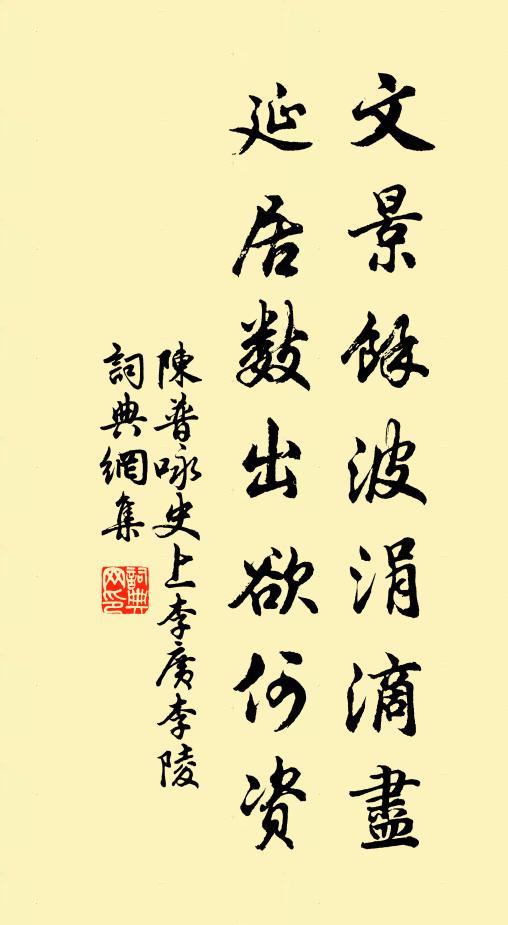 文景餘波涓滴盡
延居數出欲何資
陳普咏史上李廣李陵
詞典網集
詞典
网印